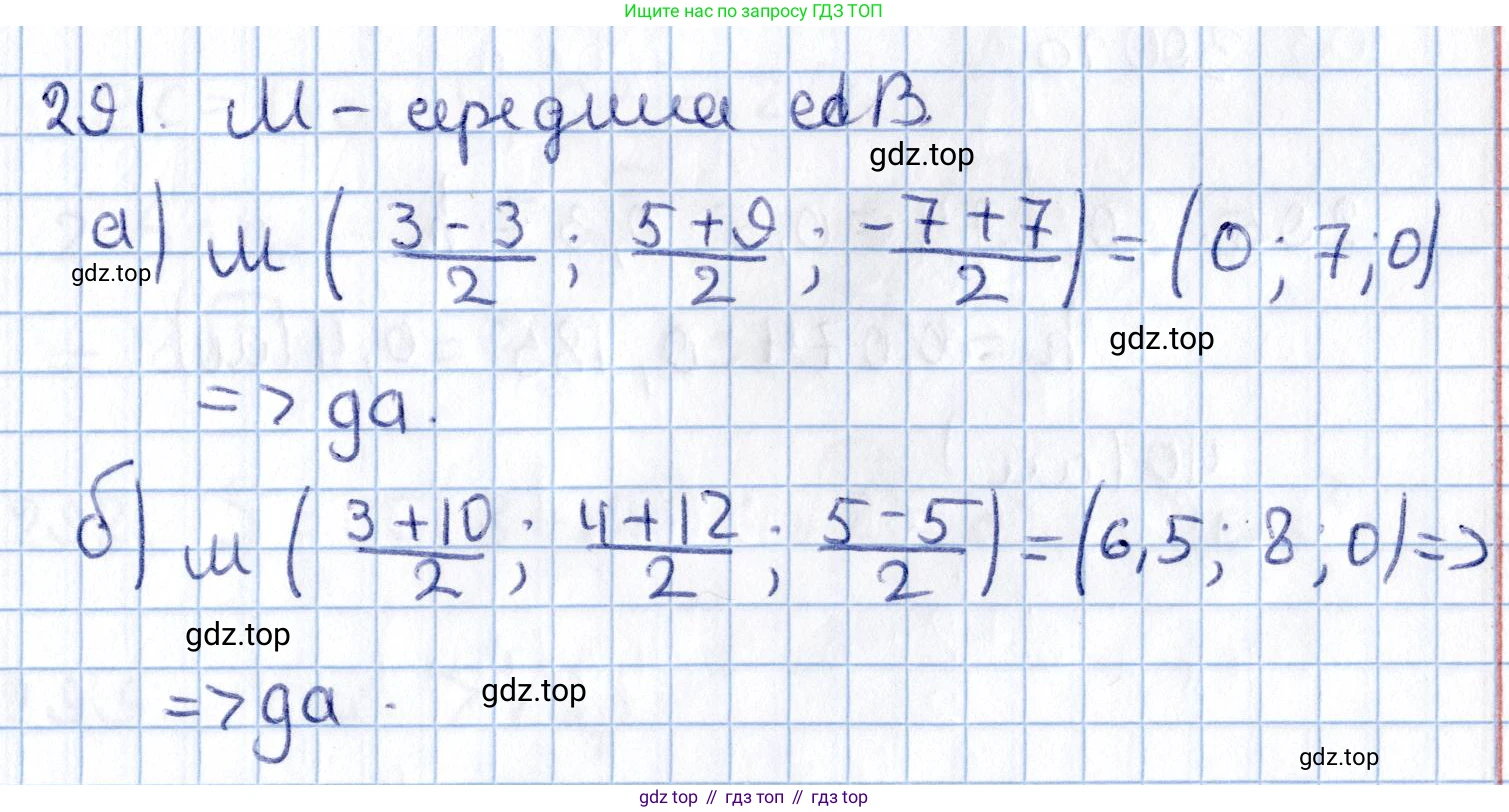 Ищите нас по запросу ГДЗ ТОП
291. М – середина АВ.
gdz.top
а) М (3 - 3/2 ; 5 + 9/2 ; -7 + 7/2) = (0 ; 7 ; 0)
gdz.top
gdz.top
=> да.
б) М (3 + 10/2 ; 4 + 12/2 ; 5 - 5/2) = (6,5 ; 8 ; 0) =>
gdz.top
=> да.
gdz.top
gdz.top
gdz top // гдз топ // гдз top